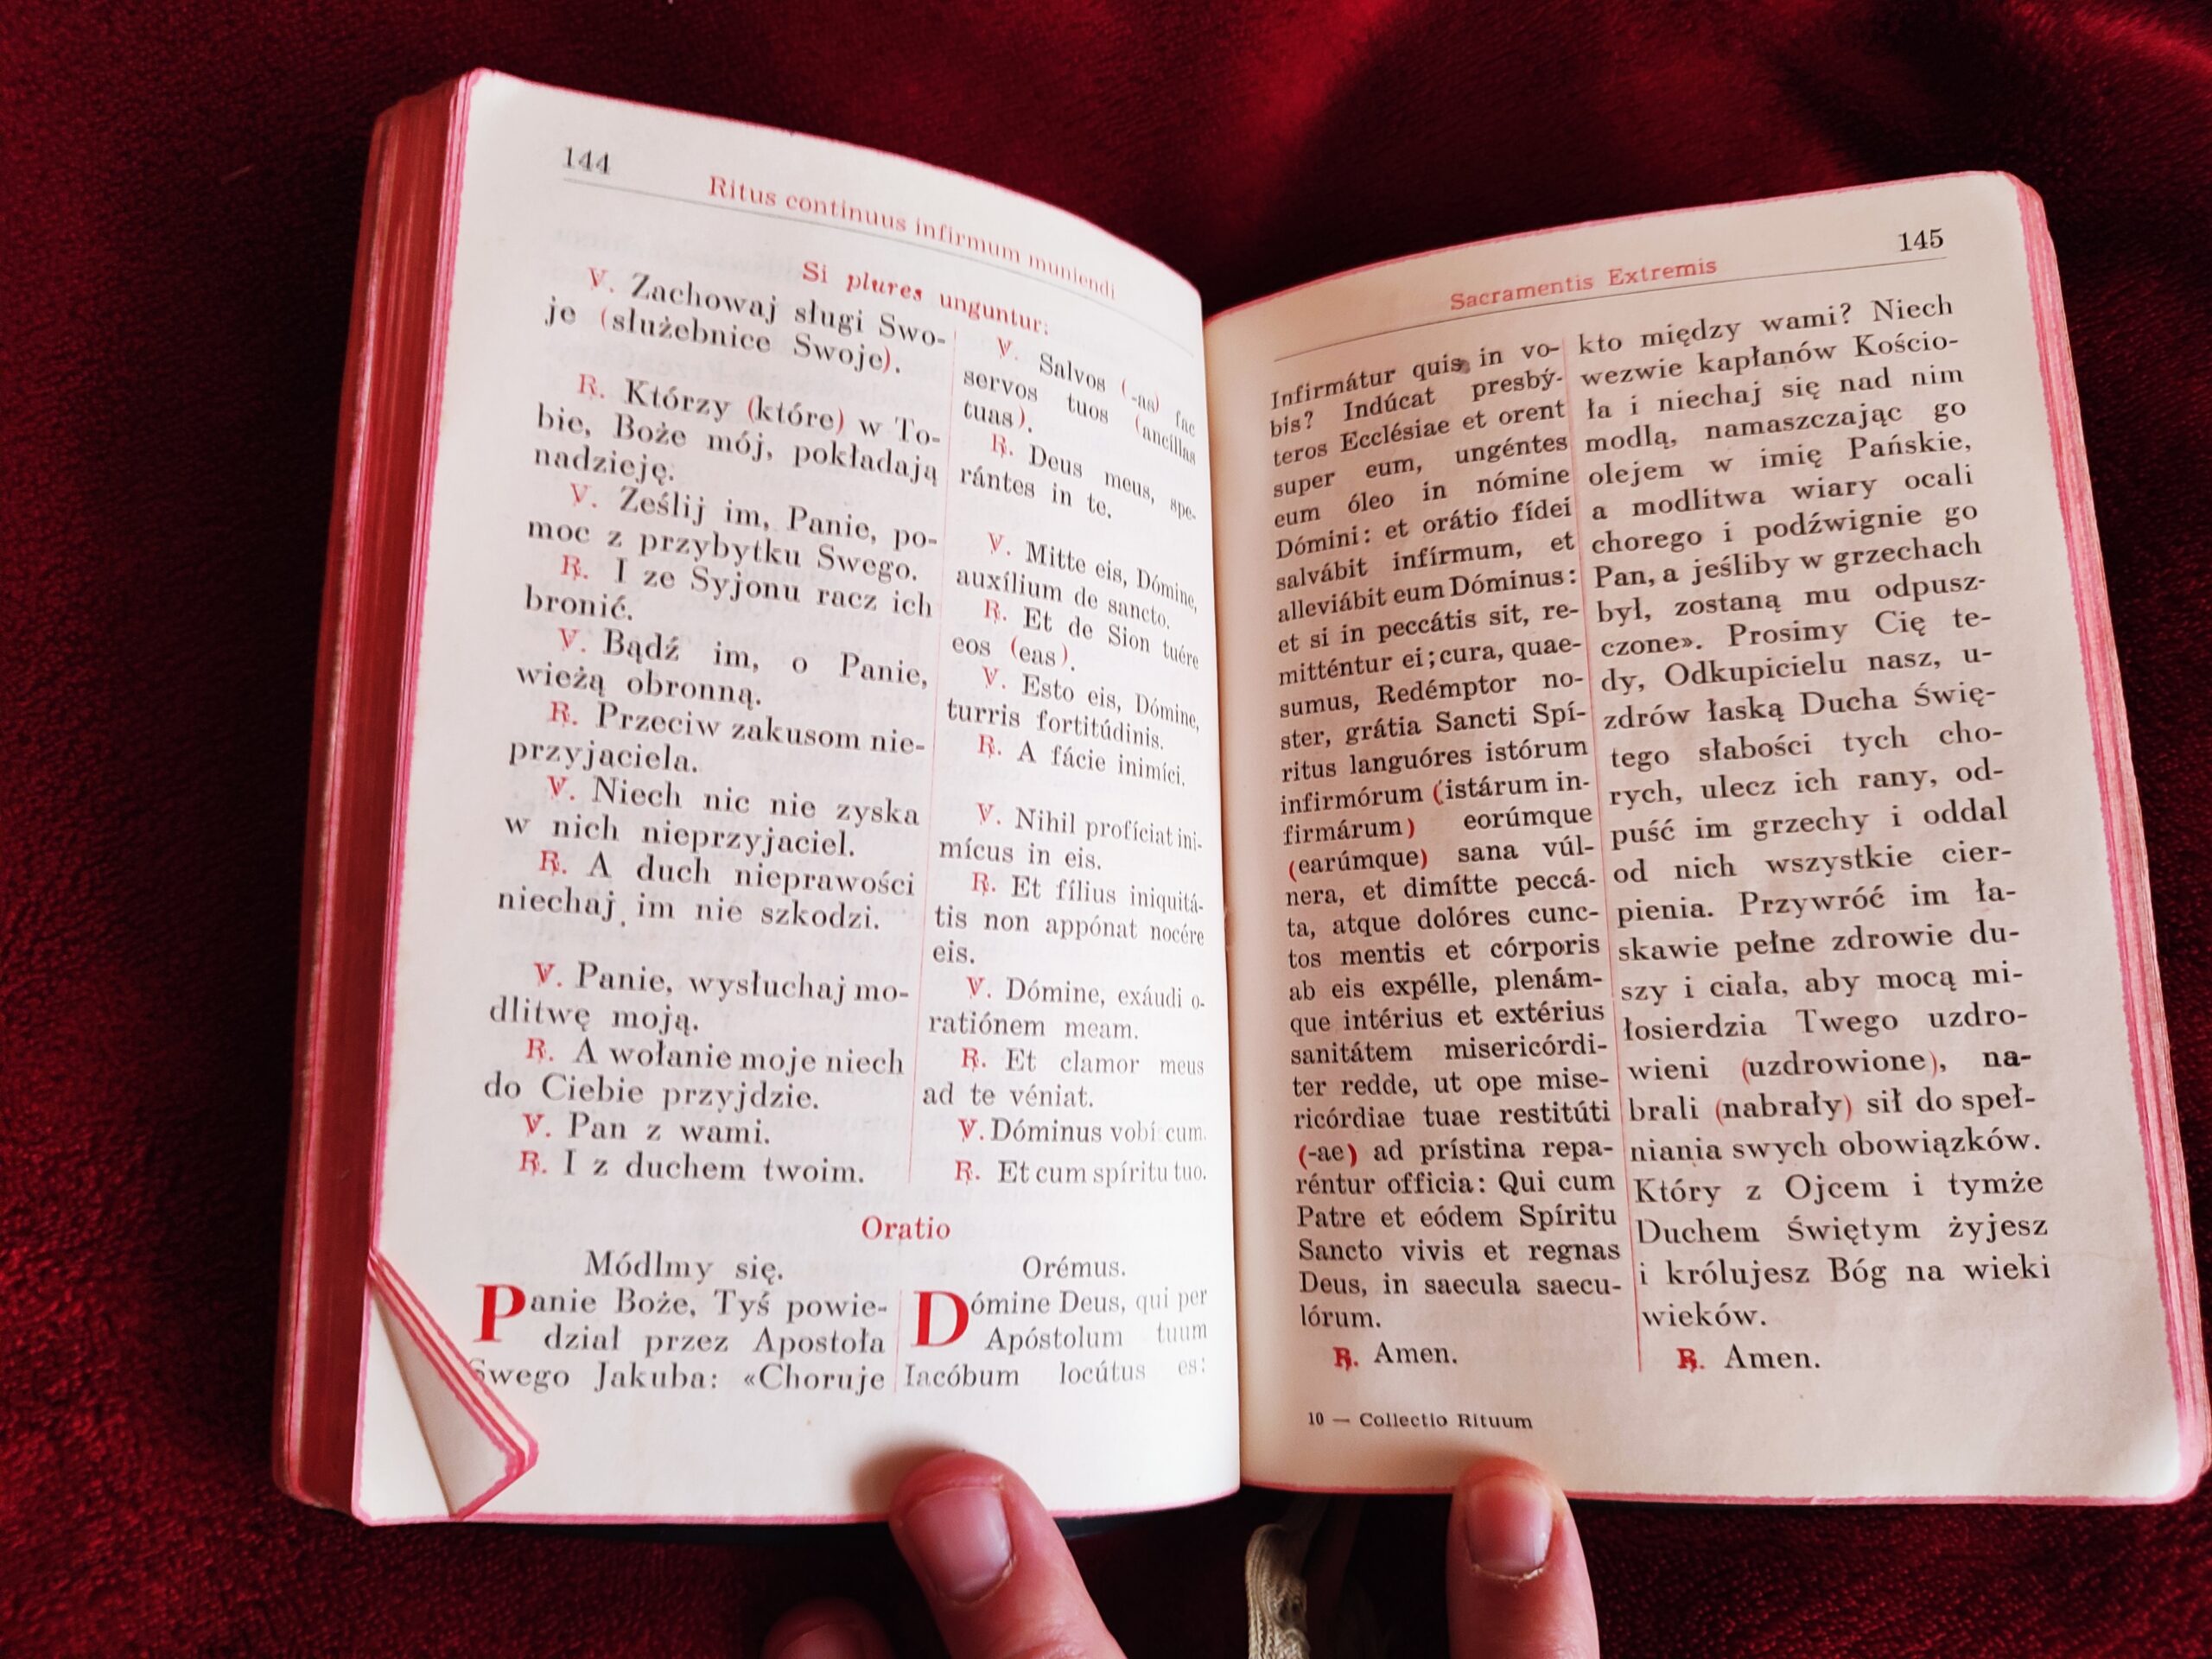 144
Ritus continuus infirmum muniendi
Si plures unguntur:
℣. Zachowaj sługi Swo-
je (służebnice Swoje).
℟. Którzy (które) w To-
bie, Boże mój, pokładają
nadzieję.
℣. Ześlij im, Panie, po-
moc z przybytku Swego.
℟. I ze Syjonu racz ich
bronić.
℣. Bądź im, o Panie,
wieżą obronną.
℟. Przeciw zakusom nie-
przyjaciela.
℣. Niech nic nie zyska
w nich nieprzyjaciel.
℟. A duch nieprawości
niechaj im nie szkodzi.
℣. Panie, wysłuchaj mo-
dlitwę moją.
℟. A wołanie moje niech
do Ciebie przyjdzie.
℣. Pan z wami.
℟. I z duchem twoim.
℣. Salvos (-as) fac
servos tuos (ancíllas
tuas).
℟. Deus meus, spe-
rántes in te.
℣. Mitte eis, Dómine,
auxílium de sancto.
℟. Et de Sion tuére
eos (eas).
℣. Esto eis, Dómine,
turris fortitúdinis.
℟. A fácie inimíci.
℣. Nihil profíciat ini-
mícus in eis.
℟. Et fílius iniquitá-
tis non appónat nocére
eis.
℣. Dómine, exáudi o-
ratiónem meam.
℟. Et clamor meus
ad te véniat.
℣. Dóminus vobí cum.
℟. Et cum spíritu tuo.
Oratio
Módlmy się.
Panie Boże, Tyś powie-
dział przez Apostoła
Swego Jakuba: «Choruje
Orémus.
Dómine Deus, qui per
Apóstolum tuum
Iacóbum locútus es:
145
Sacramentis Extremis
Infirmátur quis in vo-
bis? Indúcat presbý-
teros Ecclésiae et orent
super eum, ungéntes
eum óleo in nómine
Dómini: et orátio fídei
salvábit infírmum, et
alleviábit eum Dóminus:
et si in peccátis sit, re-
mitténtur ei; cura, quae-
sumus, Redémptor no-
ster, grátia Sancti Spí-
ritus languóres istórum
infirmórum (istárum in-
firmárum) eorúmque
(earúmque) sana vúl-
nera, et dimítte peccá-
ta, atque dolóres cunc-
tos mentis et córporis
ab eis expélle, plenám-
que intérius et extérius
sanitátem misericórdi-
ter redde, ut ope mise-
ricórdiae tuae restitúti
(-ae) ad prístina repa-
réntur officia: Qui cum
Patre et eódem Spíritu
Sancto vivis et regnas
Deus, in saecula saecu-
lórum.
℟. Amen.
kto między wami? Niech
wezwie kapłanów Kościo-
ła i niechaj się nad nim
modlą, namaszczając go
olejem w imię Pańskie,
a modlitwa wiary ocali
chorego i podźwignie go
Pan, a jeśliby w grzechach
był, zostaną mu odpusz-
czone». Prosimy Cię te-
dy, Odkupicielu nasz, u-
zdrów łaską Ducha Świę-
tego słabości tych cho-
rych, ulecz ich rany, od-
puść im grzechy i oddal
od nich wszystkie cier-
pienia. Przywróć im ła-
skawie pełne zdrowie du-
szy i ciała, aby mocą mi-
łosierdzia Twego uzdro-
wieni (uzdrowione), na-
brali (nabrały) sił do speł-
niania swych obowiązków.
Który z Ojcem i tymże
Duchem Świętym żyjesz
i królujesz Bóg na wieki
wieków.
℟. Amen.
10 — Collectio Rituum